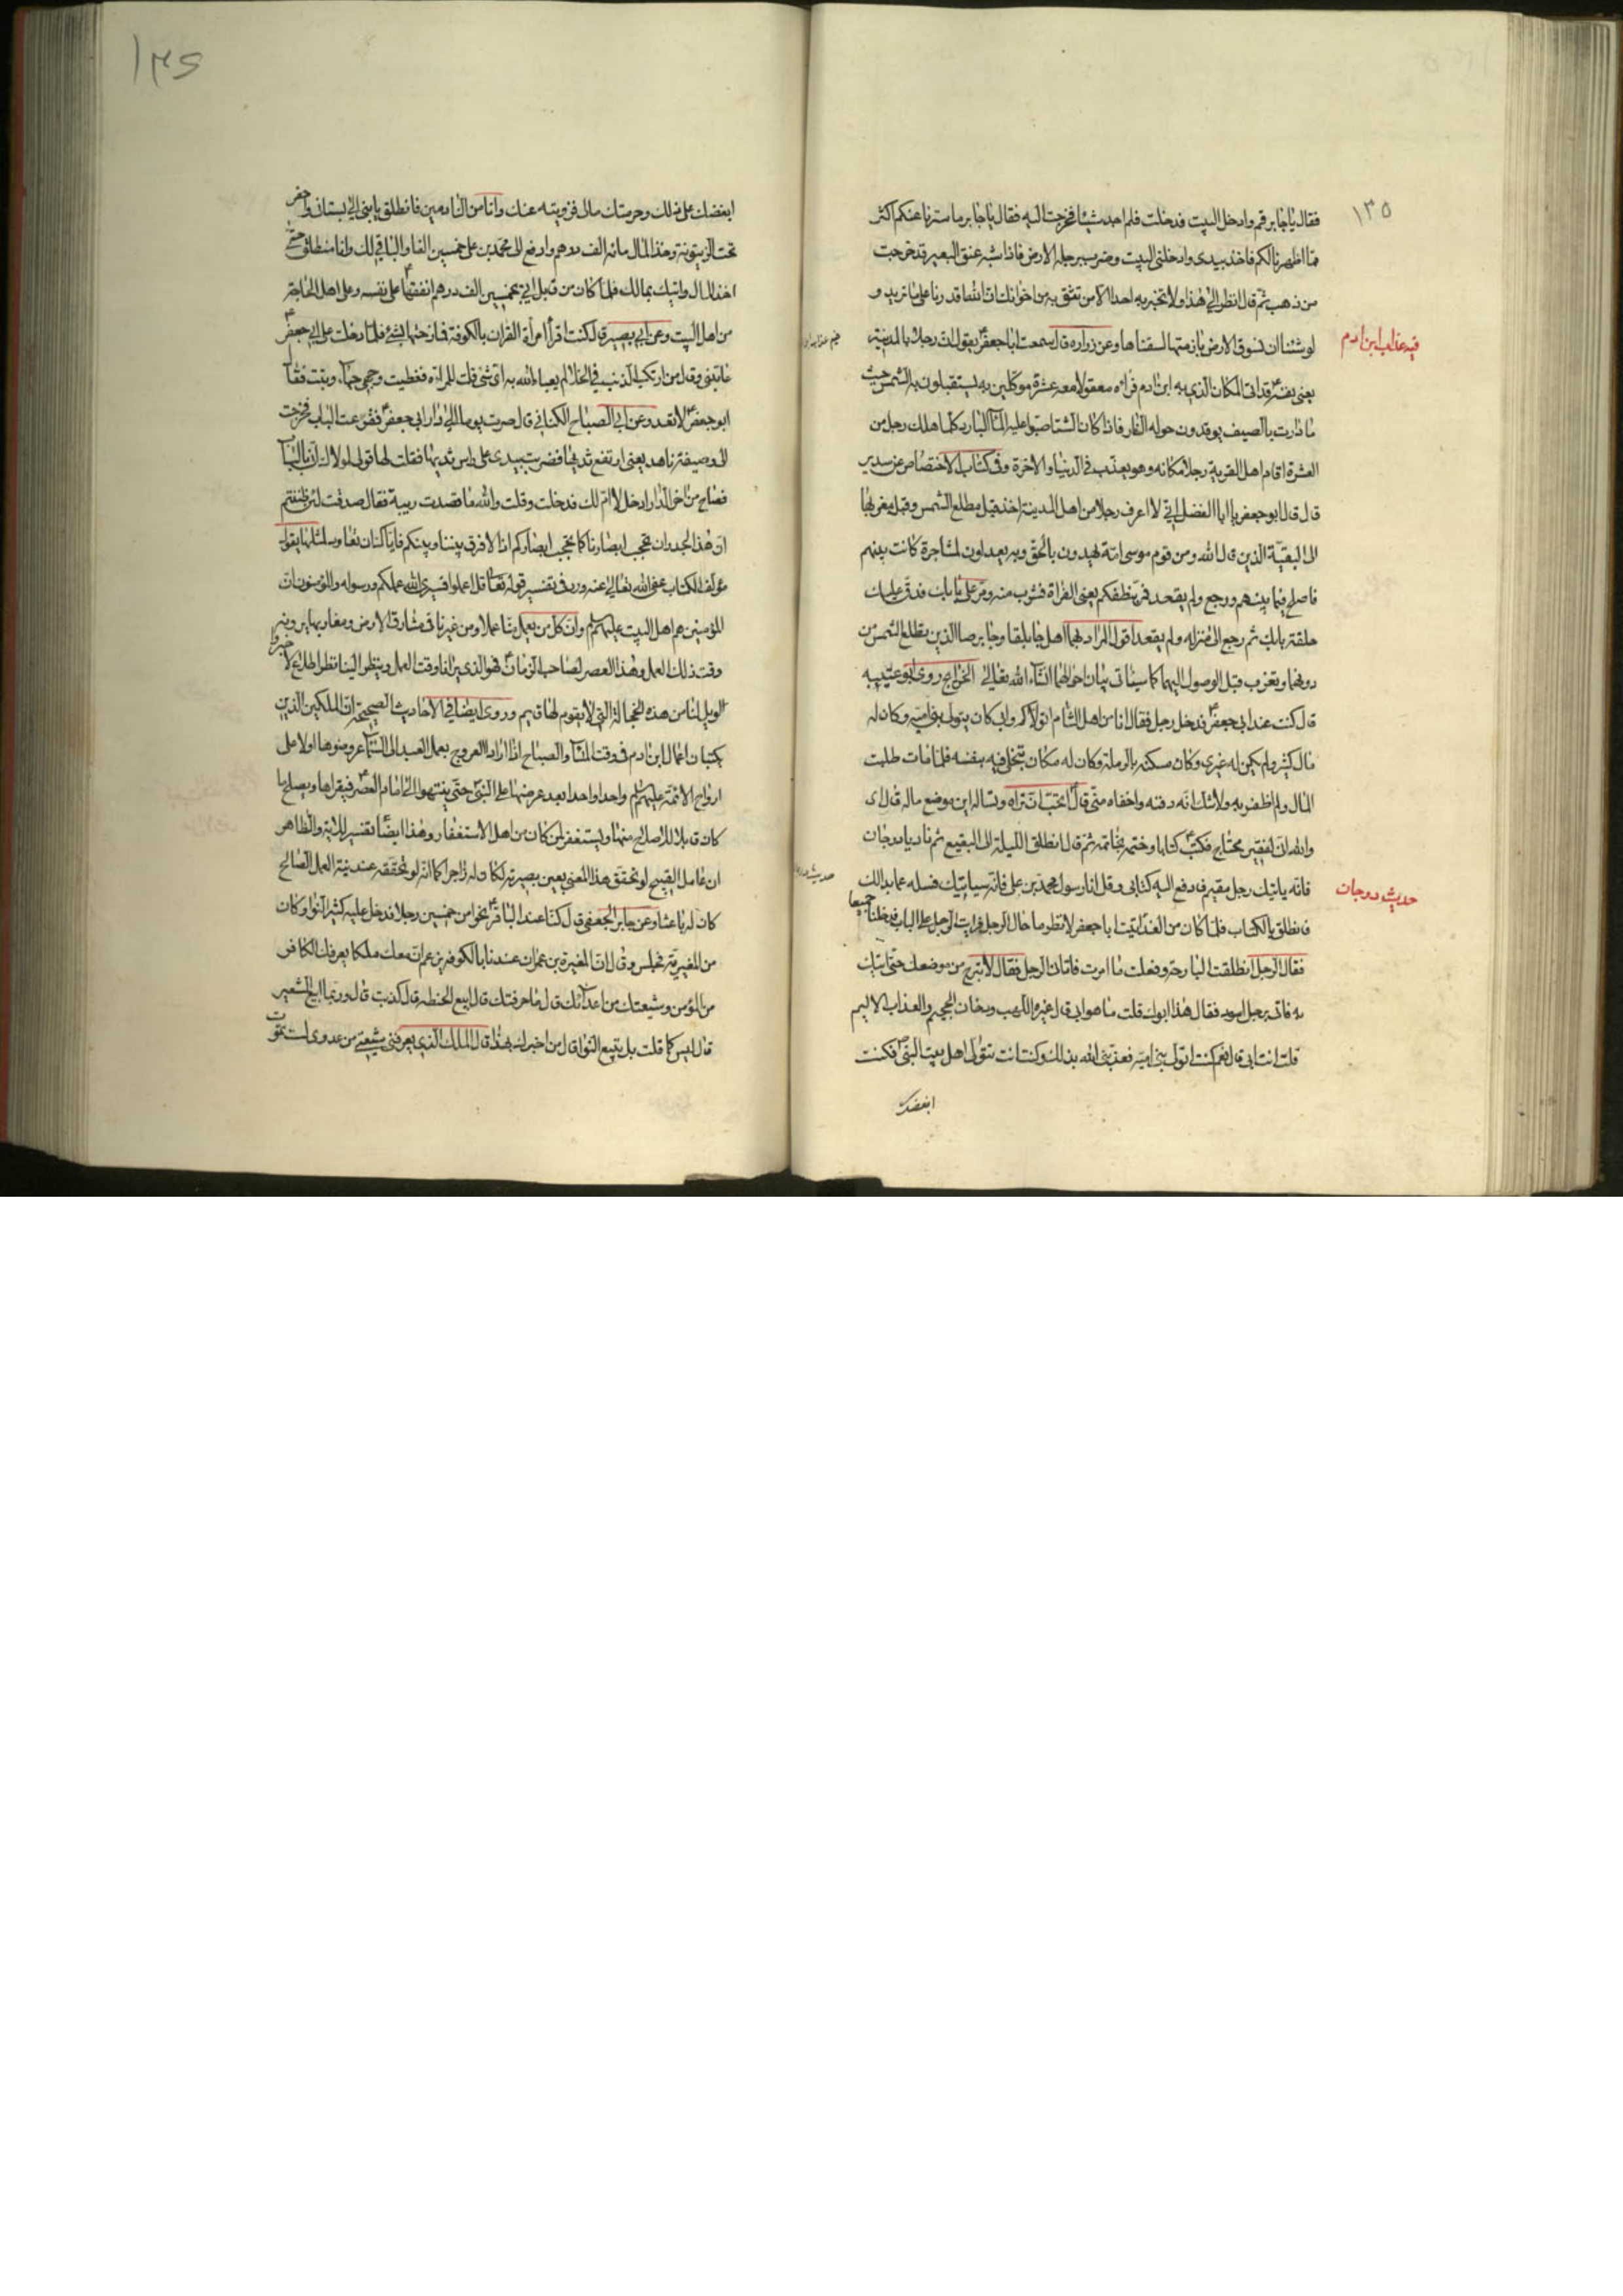 ١٣٥
فقال يا جابر قم وادخل البيت فدخلت فلم اجد شيئا فخرجت اليه فقال يا جابر ما سترنا عنكم اكثر
مما اظهرنا لكم فاخذ بيدى وادخلنى البيت وضرب برجله الارض فاذا شبه عنق البعير قد خرجت
من ذهب ثم قال انظر الى هذا ولا تخبر به احدا الا من تثق به من اخوانك ان الله اقدرنا على ما نريد و
لو شئنا ان نسوق الارض بازمتها لسقناها وعن زراره قال سمعت ابا جعفر يقول ان رجلا بالمدينة
فيه عذاب ابن ادم
يعنى نفسه قد اتى المكان الذى به ابن ادم فراه معقولا معه عشرة موكلين به يستقبلون به الشمس حيث
ما دارت بالصيف يوقدون حوله النار فاذا كان الشتا صبوا عليه الماء البارد كلما هلك رجل من
العشرة اقام اهل القرية رجلا مكانه وهو يعذب فى الدنيا والاخرة وفى كتاب الاختصاص عن سدير
قال قال ابو جعفر يا ابا الفضل انى لاعرف رجلا من اهل المدينة اخذ قبل مطلع الشمس وقبل مغربها
الى البقية الذين قال الله ومن قوم موسى امة يهدون بالحق وبه يعدلون لمشاجرة كانت بينهم
فاصلح فيما بينهم ورجع ولم يقعد فمر بنطفكم يعنى الفراة فشرب منه ومر على بابك فدق عليك
حلقة بابك ثم رجع الى منزله ولم يقعد اقول المراد بهما اهل جابلقا وجابرصا الذين تطلع الشمس من
دونهما وتغرب قبل الوصول اليهما كما سياتى بيان احوالهما انشاء الله تعالى الخرايج روى ابو عتيبه
قال كنت عند ابى جعفر فدخل رجل فقال انا من اهل الشام اتولاكم وابى كان يتولى بنى اميه وكان له
مال كثير ولم يكن له غيرى وكان مسكنه بالرملة وكان له مكان يتخلى فيه بنفسه فلما مات طلبت
المال ولم اظفر به ولا شك انه دفنه واخفاه منى قال اتحب ان تراه وتساله اين موضع ماله قال اى
والله انى لفقير محتاج فكتب كتابا وختمه بخاتمه ثم قال انطلق الليلة الى البقيع ثم ناد يا درجان
حديث درجان
فانه ياتيك رجل مقيم فادفع اليه كتابى وقل انا رسول محمد بن على فانه سياتيك فسله عما بدالك
فانطلق بالكتاب فلما كان من الغد اتيت ابا جعفر لانظر ما حال الرجل فرايت الرجل على الباب فدخلنا جميعا
فقال الرجل انطلقت البارحة وفعلت ما امرت فاتانى الرجل فقال لا تبرح من موضعك حتى اتيك
به فاتى برجل اسود فقال هذا ابوك قلت ما هو ابى قال غيره اللهب ودخان الجحيم والعذاب الاليم
قلت انت ابى قال نعم كنت اتولى بنى اميه فعذبنى الله بذلك وكنت انت تتولى اهل بيت النبى فكنت
ابغضك
ابغضك على ذلك وحرمتك مالى فزويته عنك وانا من النادمين فانطلق يا بنى الى بستانى واحفر
تحت الزيتونة وخذ المال مائة الف درهم وادفع الى محمد بن على خمسين الفا والباقى لك وانا منطلق حتى
اخذ المال واتيك بمالك فلما كان من قبل اتى بخمسين الف درهم انفقها على نفسه وعلى اهل الحاجة
من اهل البيت وعن ابى بصير قال كنت اقرأ امرأة القران بالكوفة فمازحتها بشئ فلما دخلت على ابى جعفر
عاتبنى وقال من ارتكب الذنب فى الخلا لم يعبا الله به اى شئ قلت للمراة فغطيت وجهى حياء وتبت فقال
ابو جعفر لا تعد وعن ابى الصباح الكنانى قال صرت يوما الى دار ابى جعفر فقرعت الباب فخرجت
الى وصيفة ناهد يعنى ارتفع ثديها فضربت بيدى على راس ثديها فقلت لها قولى لمولاك انى بالباب
فصاح من اخر الدار ادخل لا ام لك فدخلت وقلت والله ما قصدت ريبة فقال صدقت لئن ظننتم
ان هذا الجدران تحجب ابصارنا كما تحجب ابصاركم اذا لا فرق بيننا وبينكم فاياك ان تعاود لمثلها يقول
مؤلف الكتاب عفى الله تعالى عنه ورد فى تفسير قوله تعالى قل اعملوا فسيرى الله عملكم ورسوله والمؤمنون ان
المؤمنين هم اهل البيت عليهم السلم وان كل من يعمل منا عملا ومن غيرنا فى مشارق الارض ومغاربها يرونه
وقت ذلك العمل وهذا العصر لصاحب الزمان فهو الذى يرانا وقت العمل وينظر الينا
الويل لنا من هذه الخجالة التى لا يقوم لها قيم وروى ايضا فى الاحاديث الصحيحة ان الملكين الذين
يكتبان اعمال ابن ادم فى وقت المساء والصباح اذا ارادا العروج بعمل العبد الى السماء عرضوها اولا على
ارواح الائمة عليهم السلم واحدا واحدا بعد عرضها على النبى حتى ينتهوا الى امام العصر فيقراها ويصلح ما
كان قابلا للاصلاح منها ويستغفر لمن كان من اهل الاستغفار وهذا ايضا تفسير للاية والظاهر
ان عامل القبيح لو تحقق هذا المعنى بعين بصيرته لكان له زاجرا كما انه لو تحققه عند نية العمل الصالح
كان له باعثا وعن جابر الجعفى قال كنا عند الباقر نحوا من خمسين رجلا فدخل عليه كثير النوا وكان
من المغيرية فجلس وقال ان المغيرة بن عمران عندنا بالكوفة يزعم ان معك ملكا يعرفك الكافر
من المؤمن وشيعتك من اعدائك قال ما حرفتك قال ابيع الحنطه قال كذبت قال وربما ابيع الشعير
قال ليس كما قلت بل تبيع النوا قال من اخبرك بهذا قال الملك الذى يعرفنى شيعتى من عدوى لست تموت